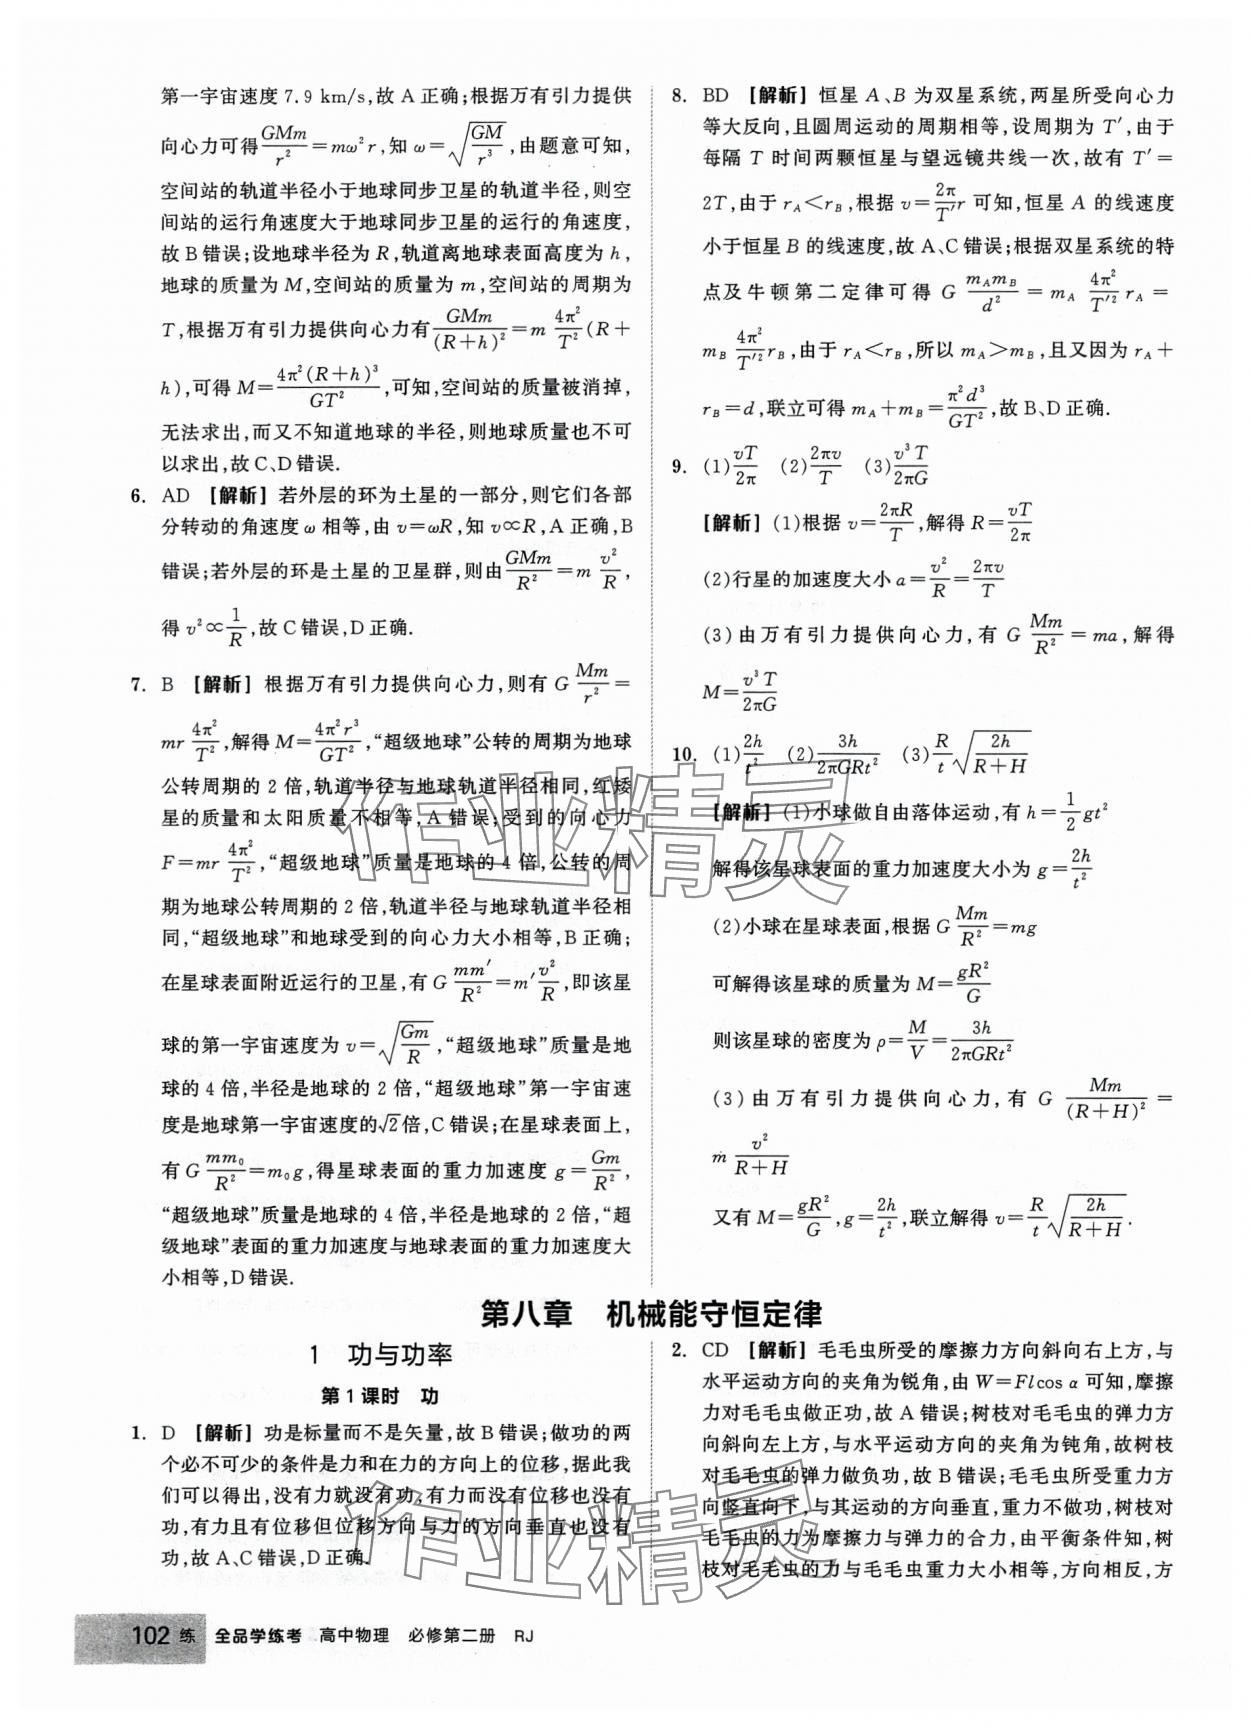 第一宇宙速度7.9 km/s,故A正确;根据万有引力提供
向心力可得\frac{GMm}{r^2}=mω²r,知ω=\sqrt{\frac{GM}{r^3}},由题意可知,
空间站的轨道半径小于地球同步卫星的轨道半径,则空
间站的运行角速度大于地球同步卫星的运行的角速度,
故B错误;设地球半径为R,轨道离地球表面高度为h,
地球的质量为M,空间站的质量为m,空间站的周期为
T,根据万有引力提供向心力有\frac{GMm}{(R+h)^2}=m\frac{4π^2}{T^2}(R+
h),可得M=\frac{4π^2(R+h)^3}{GT^2},可知,空间站的质量被消掉,
无法求出,而又不知道地球的半径,则地球质量也不可
以求出,故C、D错误.
6. AD [解析]若外层的环为土星的一部分,则它们各部
分转动的角速度ω相等,由v=ωR,知v∝R,A正确,B
错误;若外层的环是土星的卫星群,则由\frac{GMm}{R^2}=m\frac{v^2}{R},
得v²∝\frac{1}{R},故C错误,D正确.
7. B [解析]根据万有引力提供向心力,则有G\frac{Mm}{r^2}=
mr\frac{4π^2}{T^2},解得M=\frac{4π^2r^3}{GT^2},“超级地球”公转的周期为地球
公转周期的2倍,轨道半径与地球轨道半径相同,红矮
星的质量和太阳质量不相等,A错误;受到的向心力
F=mr\frac{4π^2}{T^2},“超级地球”质量是地球的4倍,公转的周
期为地球公转周期的2倍,轨道半径与地球轨道半径相
同,“超级地球”和地球受到的向心力大小相等,B正确;
在星球表面附近运行的卫星,有G\frac{mm'}{R^2}=m'\frac{v^2}{R},即该星
球的第一宇宙速度为v=\sqrt{\frac{Gm}{R}},“超级地球”质量是地
球的4倍,半径是地球的2倍,“超级地球”第一宇宙速
度是地球第一宇宙速度的√2倍,C错误;在星球表面上,
有G\frac{mm_0}{R^2}=m_0g,得星球表面的重力加速度g=\frac{Gm}{R^2},
“超级地球”质量是地球的4倍,半径是地球的2倍,“超
级地球”表面的重力加速度与地球表面的重力加速度大
小相等,D错误.
8. BD [解析]恒星A、B为双星系统,两星所受向心力
等大反向,且圆周运动的周期相等,设周期为T',由于
每隔T时间两颗恒星与望远镜共线一次,故有T'=
2T,由于r_A<r_B,根据v=\frac{2π}{T'}r可知,恒星A的线速度
小于恒星B的线速度,故A、C错误;根据双星系统的特
点及牛顿第二定律可得G\frac{m_Am_B}{d^2}=m_A\frac{4π^2}{T'^2}r_A=
m_B\frac{4π^2}{T'^2}r_B,由于r_A<r_B,所以m_A>m_B,且又因为r_A+
r_B=d,联立可得m_A+m_B=\frac{π^2d^3}{GT^2},故B、D正确.
9. (1)\frac{vT}{2π} (2)\frac{2πv}{T} (3)\frac{v^3T}{2πG}
[解析](1)根据v=\frac{2πR}{T},解得R=\frac{vT}{2π}
(2)行星的加速度大小a=\frac{v^2}{R}=\frac{2πv}{T}
(3)由万有引力提供向心力,有G\frac{Mm}{R^2}=ma,解得
M=\frac{v^3T}{2πG}
10. (1)\frac{2h}{t^2} (2)\frac{3h}{2πGRt^2} (3)\frac{R}{t}\sqrt{\frac{2h}{R+H}}
[解析](1)小球做自由落体运动,有h=\frac{1}{2}gt²
解得该星球表面的重力加速度大小为g=\frac{2h}{t^2}
(2)小球在星球表面,根据G\frac{Mm}{R^2}=mg
可解得该星球的质量为M=\frac{gR^2}{G}
则该星球的密度为ρ=\frac{M}{V}=\frac{3h}{2πGRt^2}
(3)由万有引力提供向心力,有G\frac{Mm}{(R+H)^2}=
m\frac{v^2}{R+H}
又有M=\frac{gR^2}{G},g=\frac{2h}{t^2},联立解得v=\frac{R}{t}\sqrt{\frac{2h}{R+H}}.
第八章 机械能守恒定律
1 功与功率
第1课时 功
1. D [解析]功是标量而不是矢量,故B错误;做功的两
个必不可少的条件是力和在力的方向上的位移,据此我
们可以得出,没有力就没有功,有力而没有位移也没有
功,有力且有位移但位移方向与力的方向垂直也没有
功,故A、C错误,D正确.
2. CD [解析]毛毛虫所受的摩擦力方向斜向右上方,与
水平运动方向的夹角为锐角,由W=Flcos α可知,摩擦
力对毛毛虫做正功,故A错误;树枝对毛毛虫的弹力方
向斜向左上方,与水平运动方向的夹角为钝角,故树枝
对毛毛虫的弹力做负功,故B错误;毛毛虫所受重力方
向竖直向下,与其运动的方向垂直,重力不做功,树枝对
毛毛虫的力为摩擦力与弹力的合力,由平衡条件知,树
枝对毛毛虫的力与毛毛虫重力大小相等,方向相反,方
作业精灵
作业精灵
102 练 全品学练考 高中物理 必修第二册 RJ